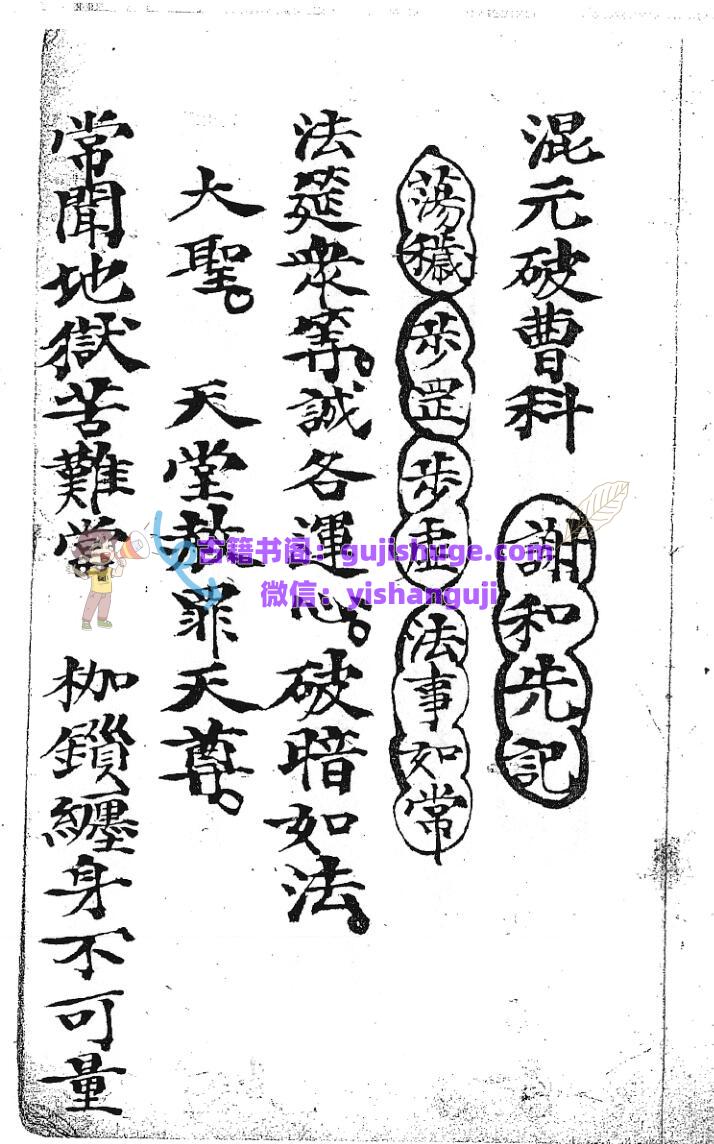 混元破曹科 謝和先記
蕩穢 步罡 步虛 法事如常
法筵衆等。誠各運心。破暗如法。
大聖。 天堂赦罪天尊。
常聞地獄苦難當 枷鎖纏身不可量
古籍书阁：gujishuge.com
微信：yishanguji